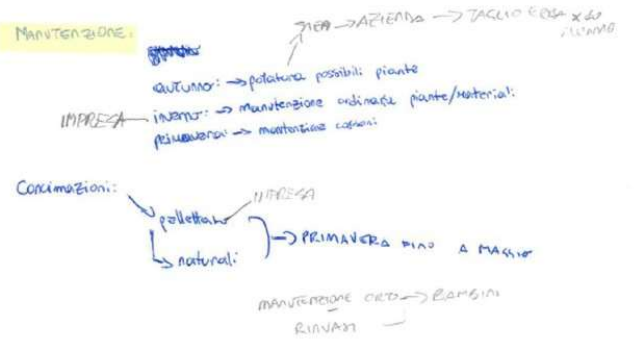 MANUTENZIONE:
AZIENDA → TAGLIO ERBA x
autunno: → potatura possibili piante
IMPRESA
inverno: → manutenzione ordinaria piante/materiali
primavera → manutenzione cassoni
Concimazioni:
IMPRESA
pellettato
→ PRIMAVERA FINO A MAGGIO
naturali
MANUTENZIONE ORTO → BAMBINI
RINVASI